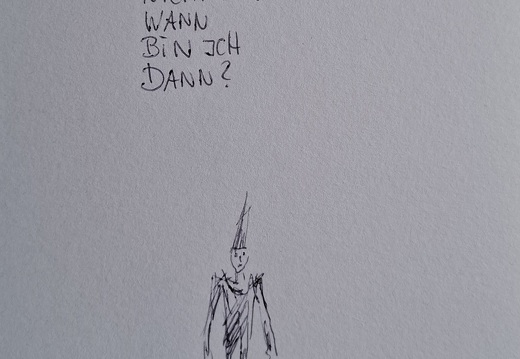 WANN
BIN ICH
DANN?